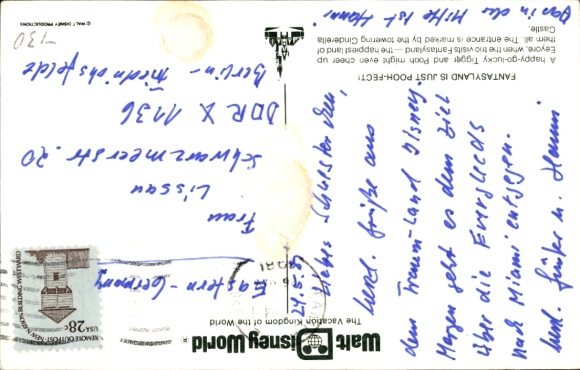 Walt Disney World ®
The Vacation Kingdom of the World
24.5.
herzl. Grüße aus
dem Traumland Disney.
Morgen geht es dem Ziel
über die Everglades
nach Miami entgegen.
herzl. Grüße u. Hanni
Das in der Mitte ist Hanni
REMOTE OUTPOST-NEW NATION BUILDING WESTWARD
USA 28c
Eastern - Germany
Frau
Lissau
Schwarzmeerstr. 20
DDR X 1136
Berlin - Friedrichsfelde
FANTASYLAND IS JUST POOH-FECT!
A happy-go-lucky Tigger and Pooh might even cheer up
Eeyore, when the trio visits Fantasyland — the happiest land of
them all. The entrance is marked by the towering Cinderella
Castle.
© WALT DISNEY PRODUCTIONS
-130